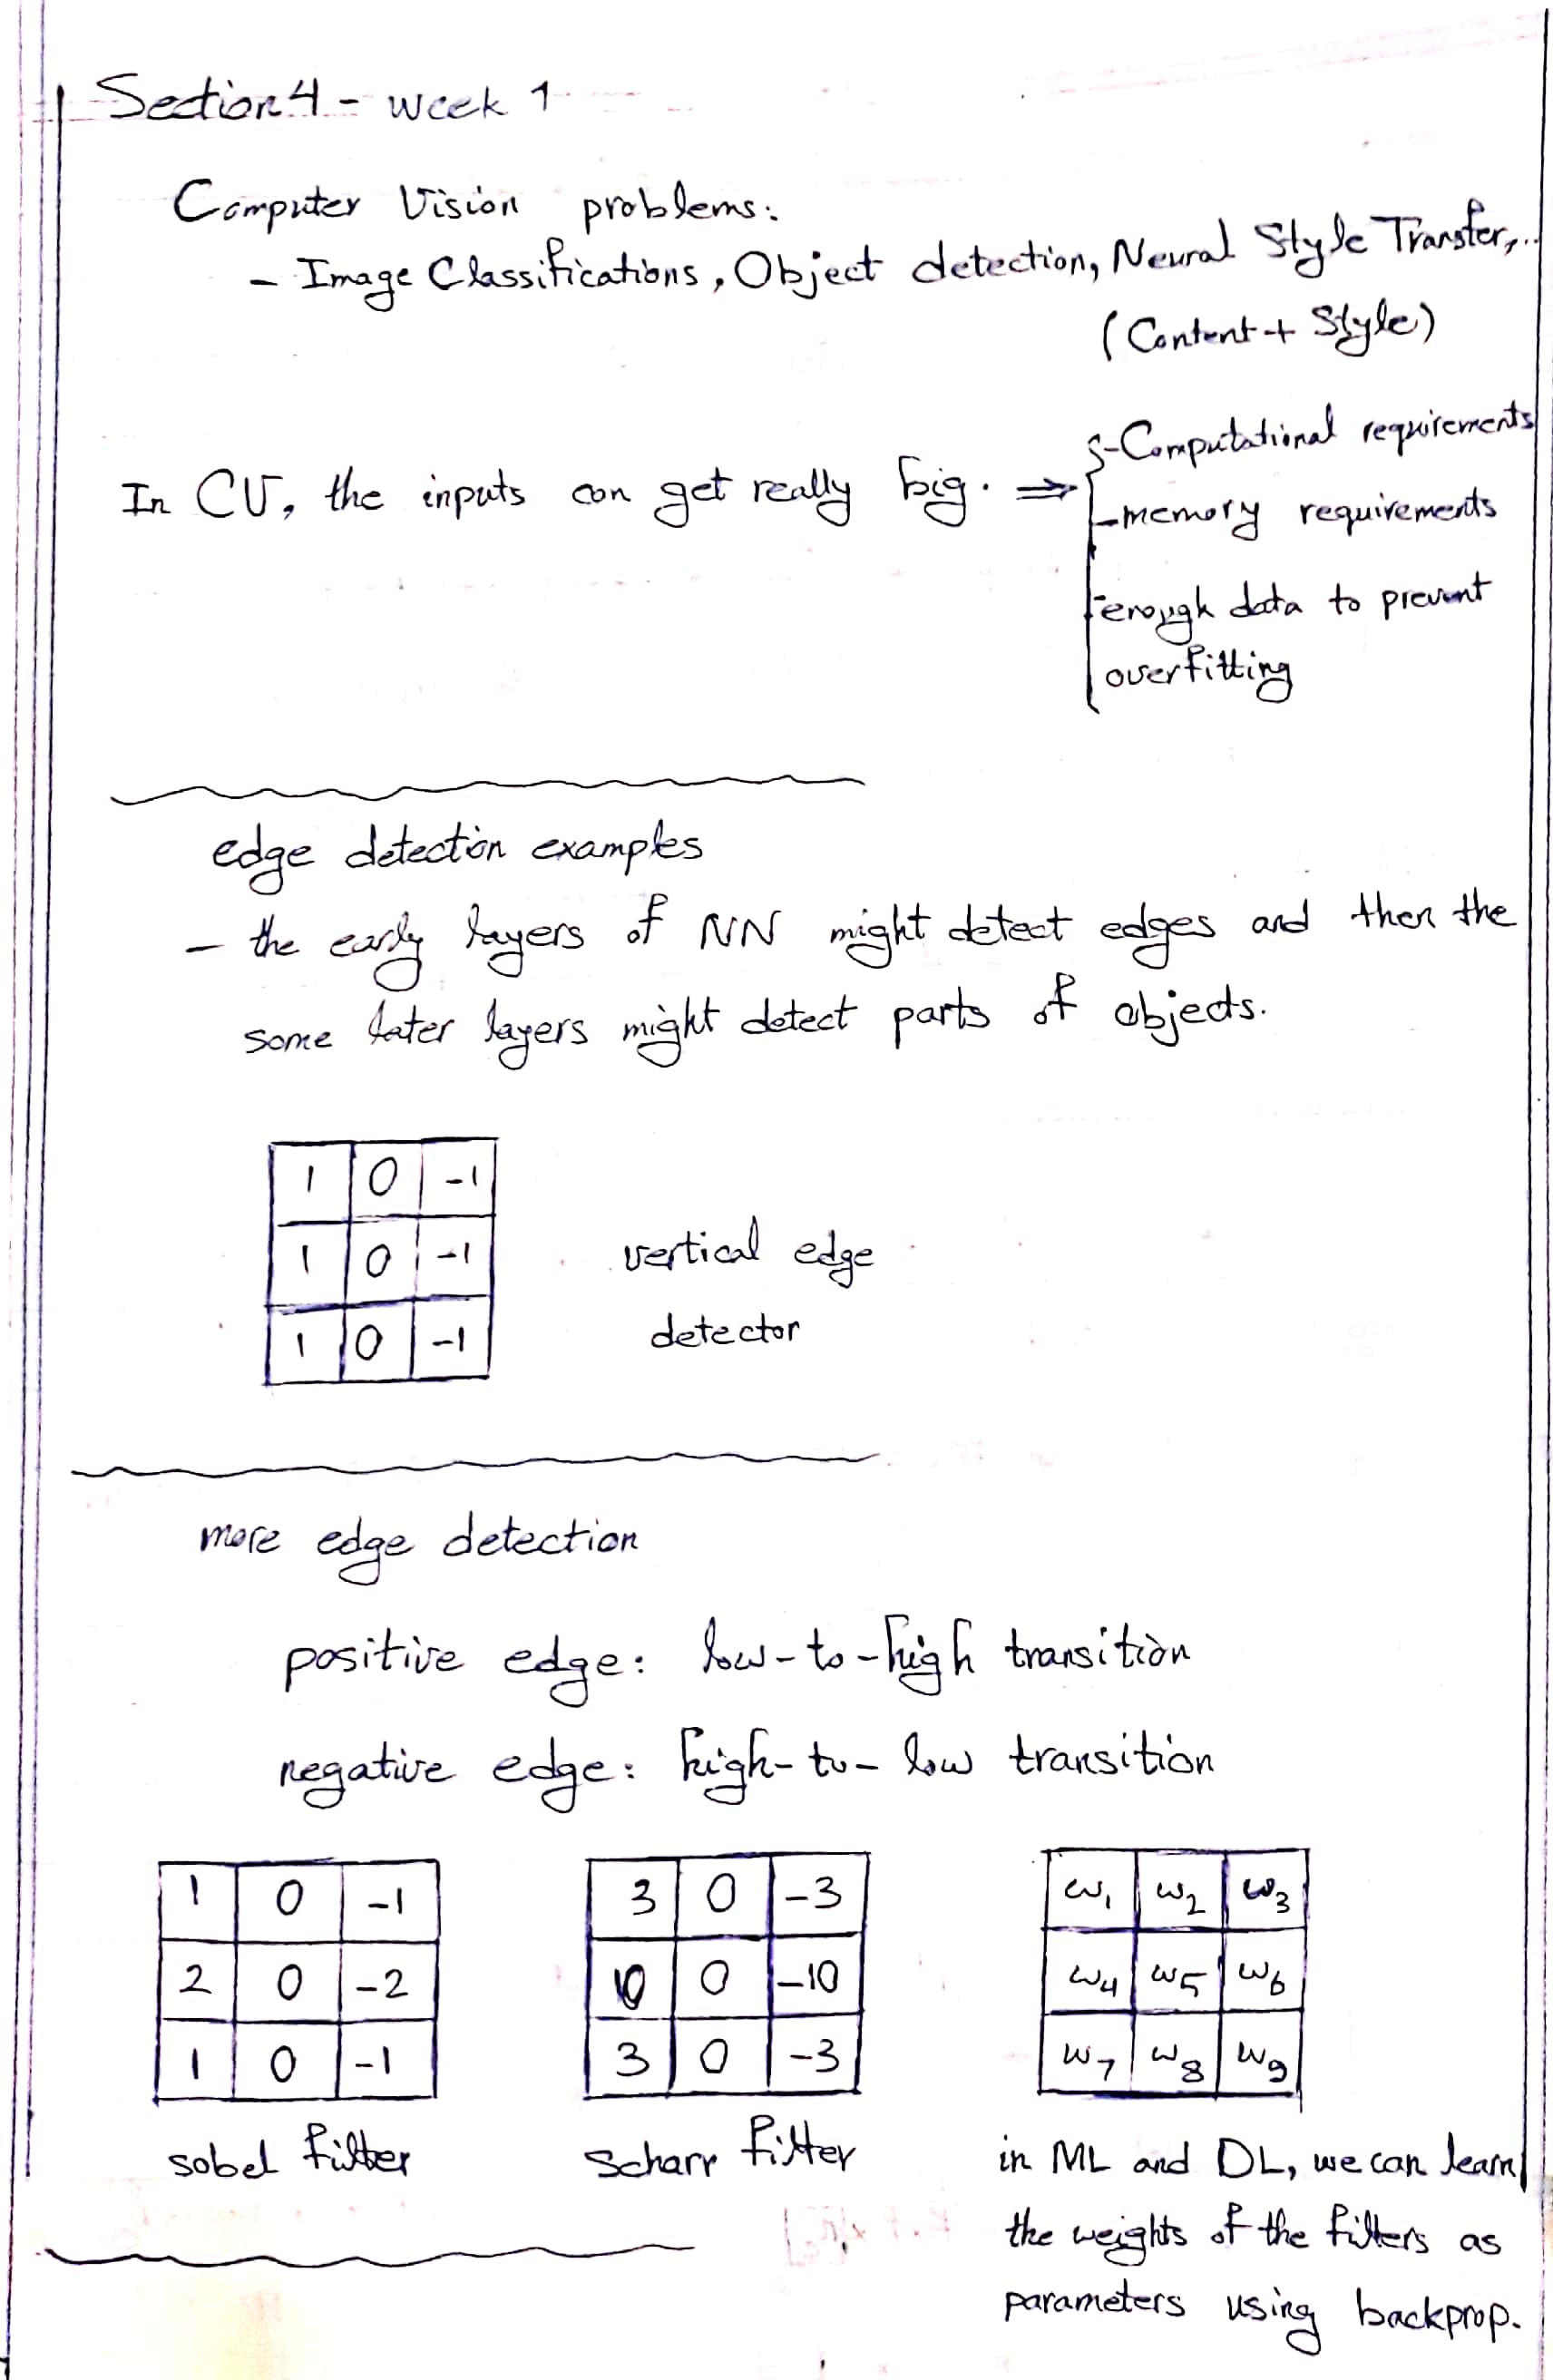 Section 4 - week 1
Computer Vision problems:
- Image Classifications, Object detection, Neural Style Transfer, ...
(Content + Style)
In CV, the inputs can get really big. ⇒
- Computational requirements
- memory requirements
- enough data to prevent
overfitting
edge detection examples
- the early layers of NN might detect edges and then the
some later layers might detect parts of objects.
1 0 -1
1 0 -1
1 0 -1
vertical edge
detector
more edge detection
positive edge: low-to-high transition
negative edge: high-to-low transition
1 0 -1
2 0 -2
1 0 -1
sobel filter
3 0 -3
10 0 -10
3 0 -3
Scharr filter
w₁ w₂ w₃
w₄ w₅ w₆
w₇ w₈ w₉
in ML and DL, we can learn
the weights of the filters as
parameters using backprop.